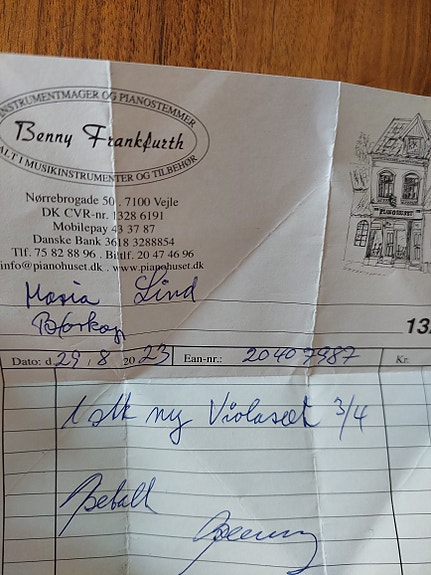 INSTRUMENTMAGER OG PIANOSTEMMER
Benny Frankfurth
ALT I MUSIKINSTRUMENTER OG TILBEHØR
Nørrebrogade 50 . 7100 Vejle
DK CVR-nr. 1328 6191
Mobilepay 43 37 87
Danske Bank 3618 3288854
Tlf. 75 82 88 96 . Biltlf. 20 47 46 96
info@pianohuset.dk . www.pianohuset.dk
PIANOHUSET
Maria Lind
13
Dato: d. 29 / 8 2023 Ean-nr.: 20407987 Kr.
1 stk ny Violasæt 3/4
Betalt
Benny